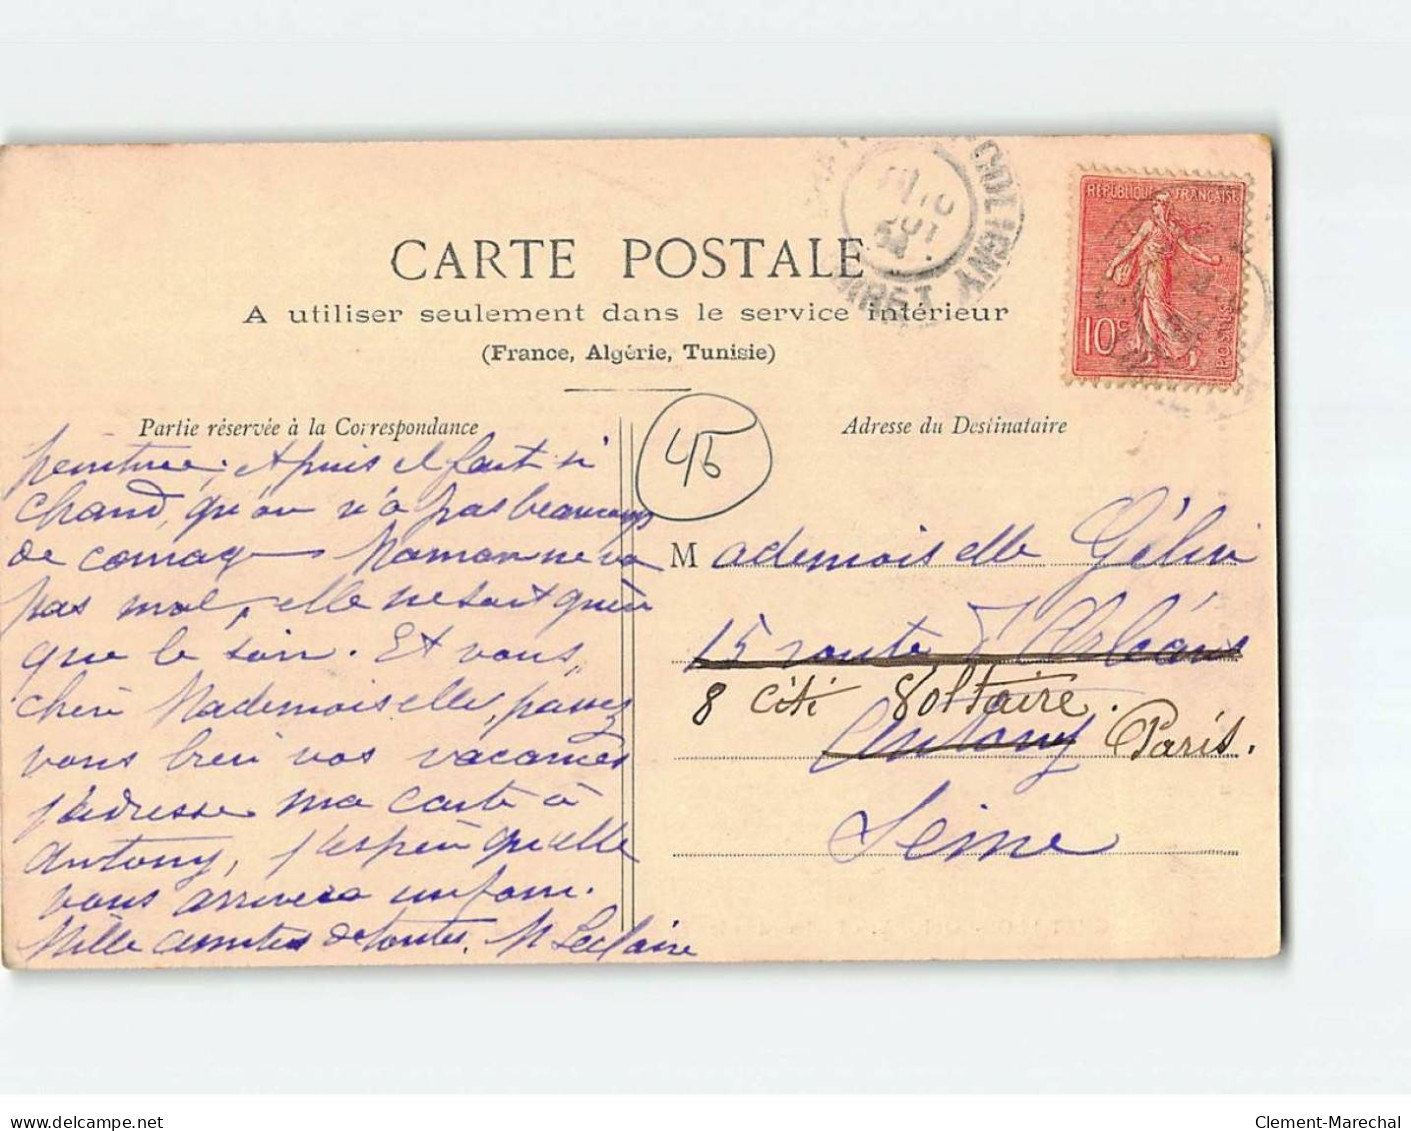 CARTE POSTALE
A utiliser seulement dans le service intérieur
(France, Algérie, Tunisie)
Partie réservée à la Correspondance
peinture; et puis il fait si
chaud, qu'on n'a pas beaucoup
de courage Maman ne va
pas mal, elle ne sort guère
que le soir. Et vous,
chère Mademoiselle, passez
vous bien vos vacances
j'adresse ma carte à
Antony, j'espère qu'elle
vous arrivera
Mille amitiés de toutes. M Leclaire
45
Adresse du Destinataire
Mademoiselle Gélin
15 route d'Orléans
8 Cité Voltaire.
Antony Paris.
Seine
COLIGNY
LOIRET
RÉPUBLIQUE FRANÇAISE
10c
POSTES
delcampe.net
Clement-Marechal